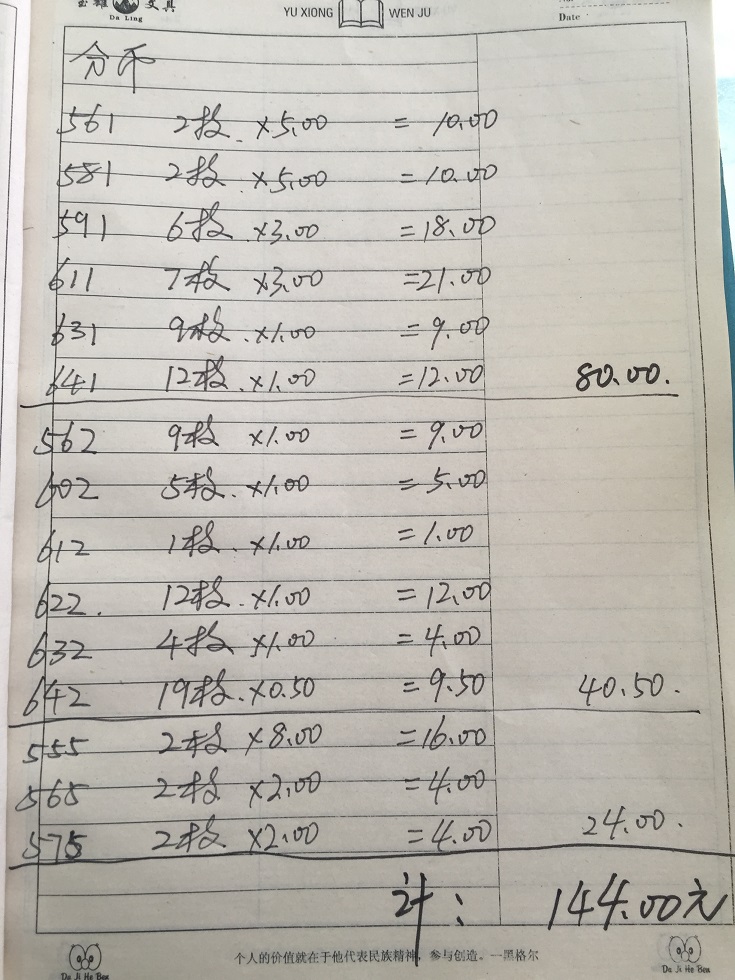 玉雄 文具
Da Ling
YU XIONG WEN JU
Date
分币
561 2枚. ×5.00 = 10.00
581 2枚. ×5.00 =10.00
591 6枚. ×3.00 =18.00
611 7枚 ×3.00 =21.00
631 9枚. ×1.00 = 9.00
641 12枚. ×1.00 =12.00 80.00.
562 9枚 ×1.00 = 9.00
602 5枚. ×1.00 = 5.00
612 1枚. ×1.00 = 1.00
622. 12枚. ×1.00 = 12.00
632 4枚 ×1.00 =4.00
642 19枚. ×0.50 = 9.50 40.50.
555 2枚 ×8.00 =16.00
565 2枚 ×2.00 =4.00
575 2枚 ×2.00 =4.00 24.00.
计: 144.00元
个人的价值就在于他代表民族精神，参与创造。—黑格尔
Da Ji He Ben
Da Ji He Ben